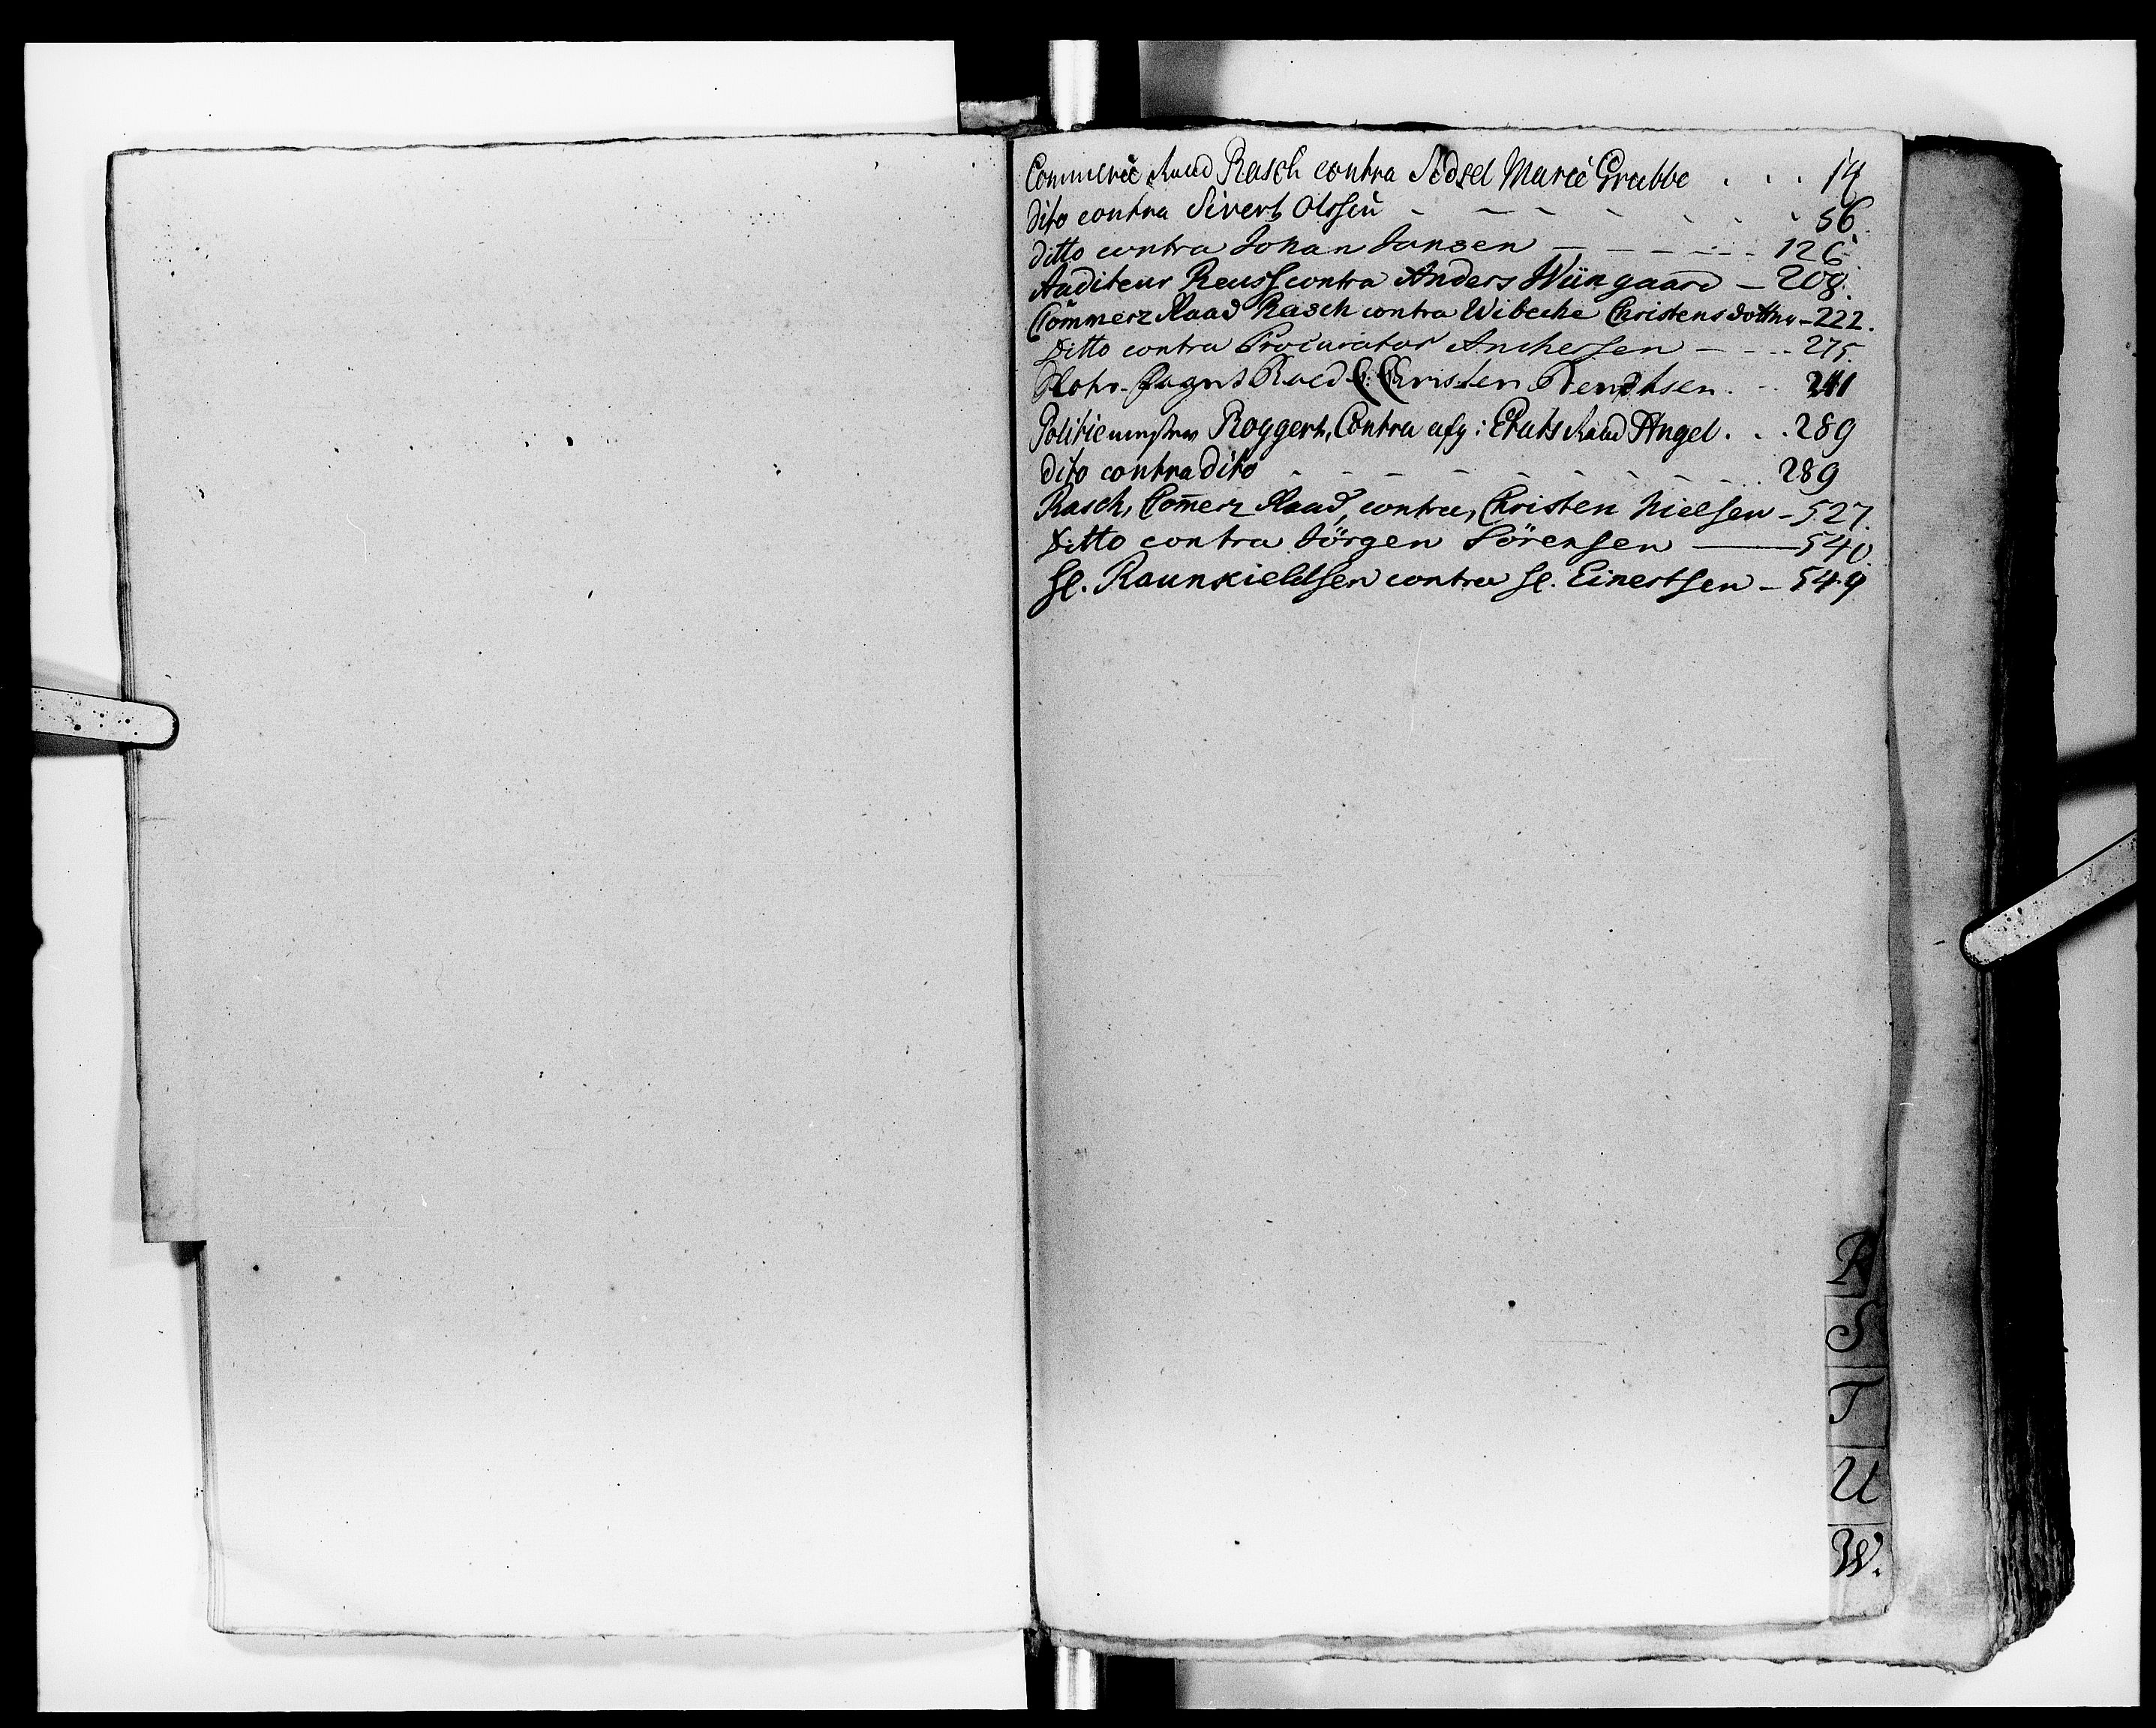 Commerce Raad Rasch contra Sidsel Marie Grubbe . . . 14
dito contra Sivert Olssen - - - - - - - 56.
ditto contra Johan Jansen - - - - - - 126.
Auditeur Reuss contra Anders Wüngaard - 208.
Commerz Raad Rasch contra Wibecke Christensdotter - 222.
Ditto contra Procurator Anchersen - - - - 275.
Raed C: Christen Bendtsen. - - 241
Politiemester Roggert, Contra afg: Etats Raad Angel. . . 289
dito contra dito - - - - - - - - 289
Rasch, Comerz Raad, contra, Christen Nielsen - 527.
Ditto contra Jörgen Sörensen - 540.
Sl. Raunkieldsen contra Sl. Einertsen - 549
R
S
T
U
W.